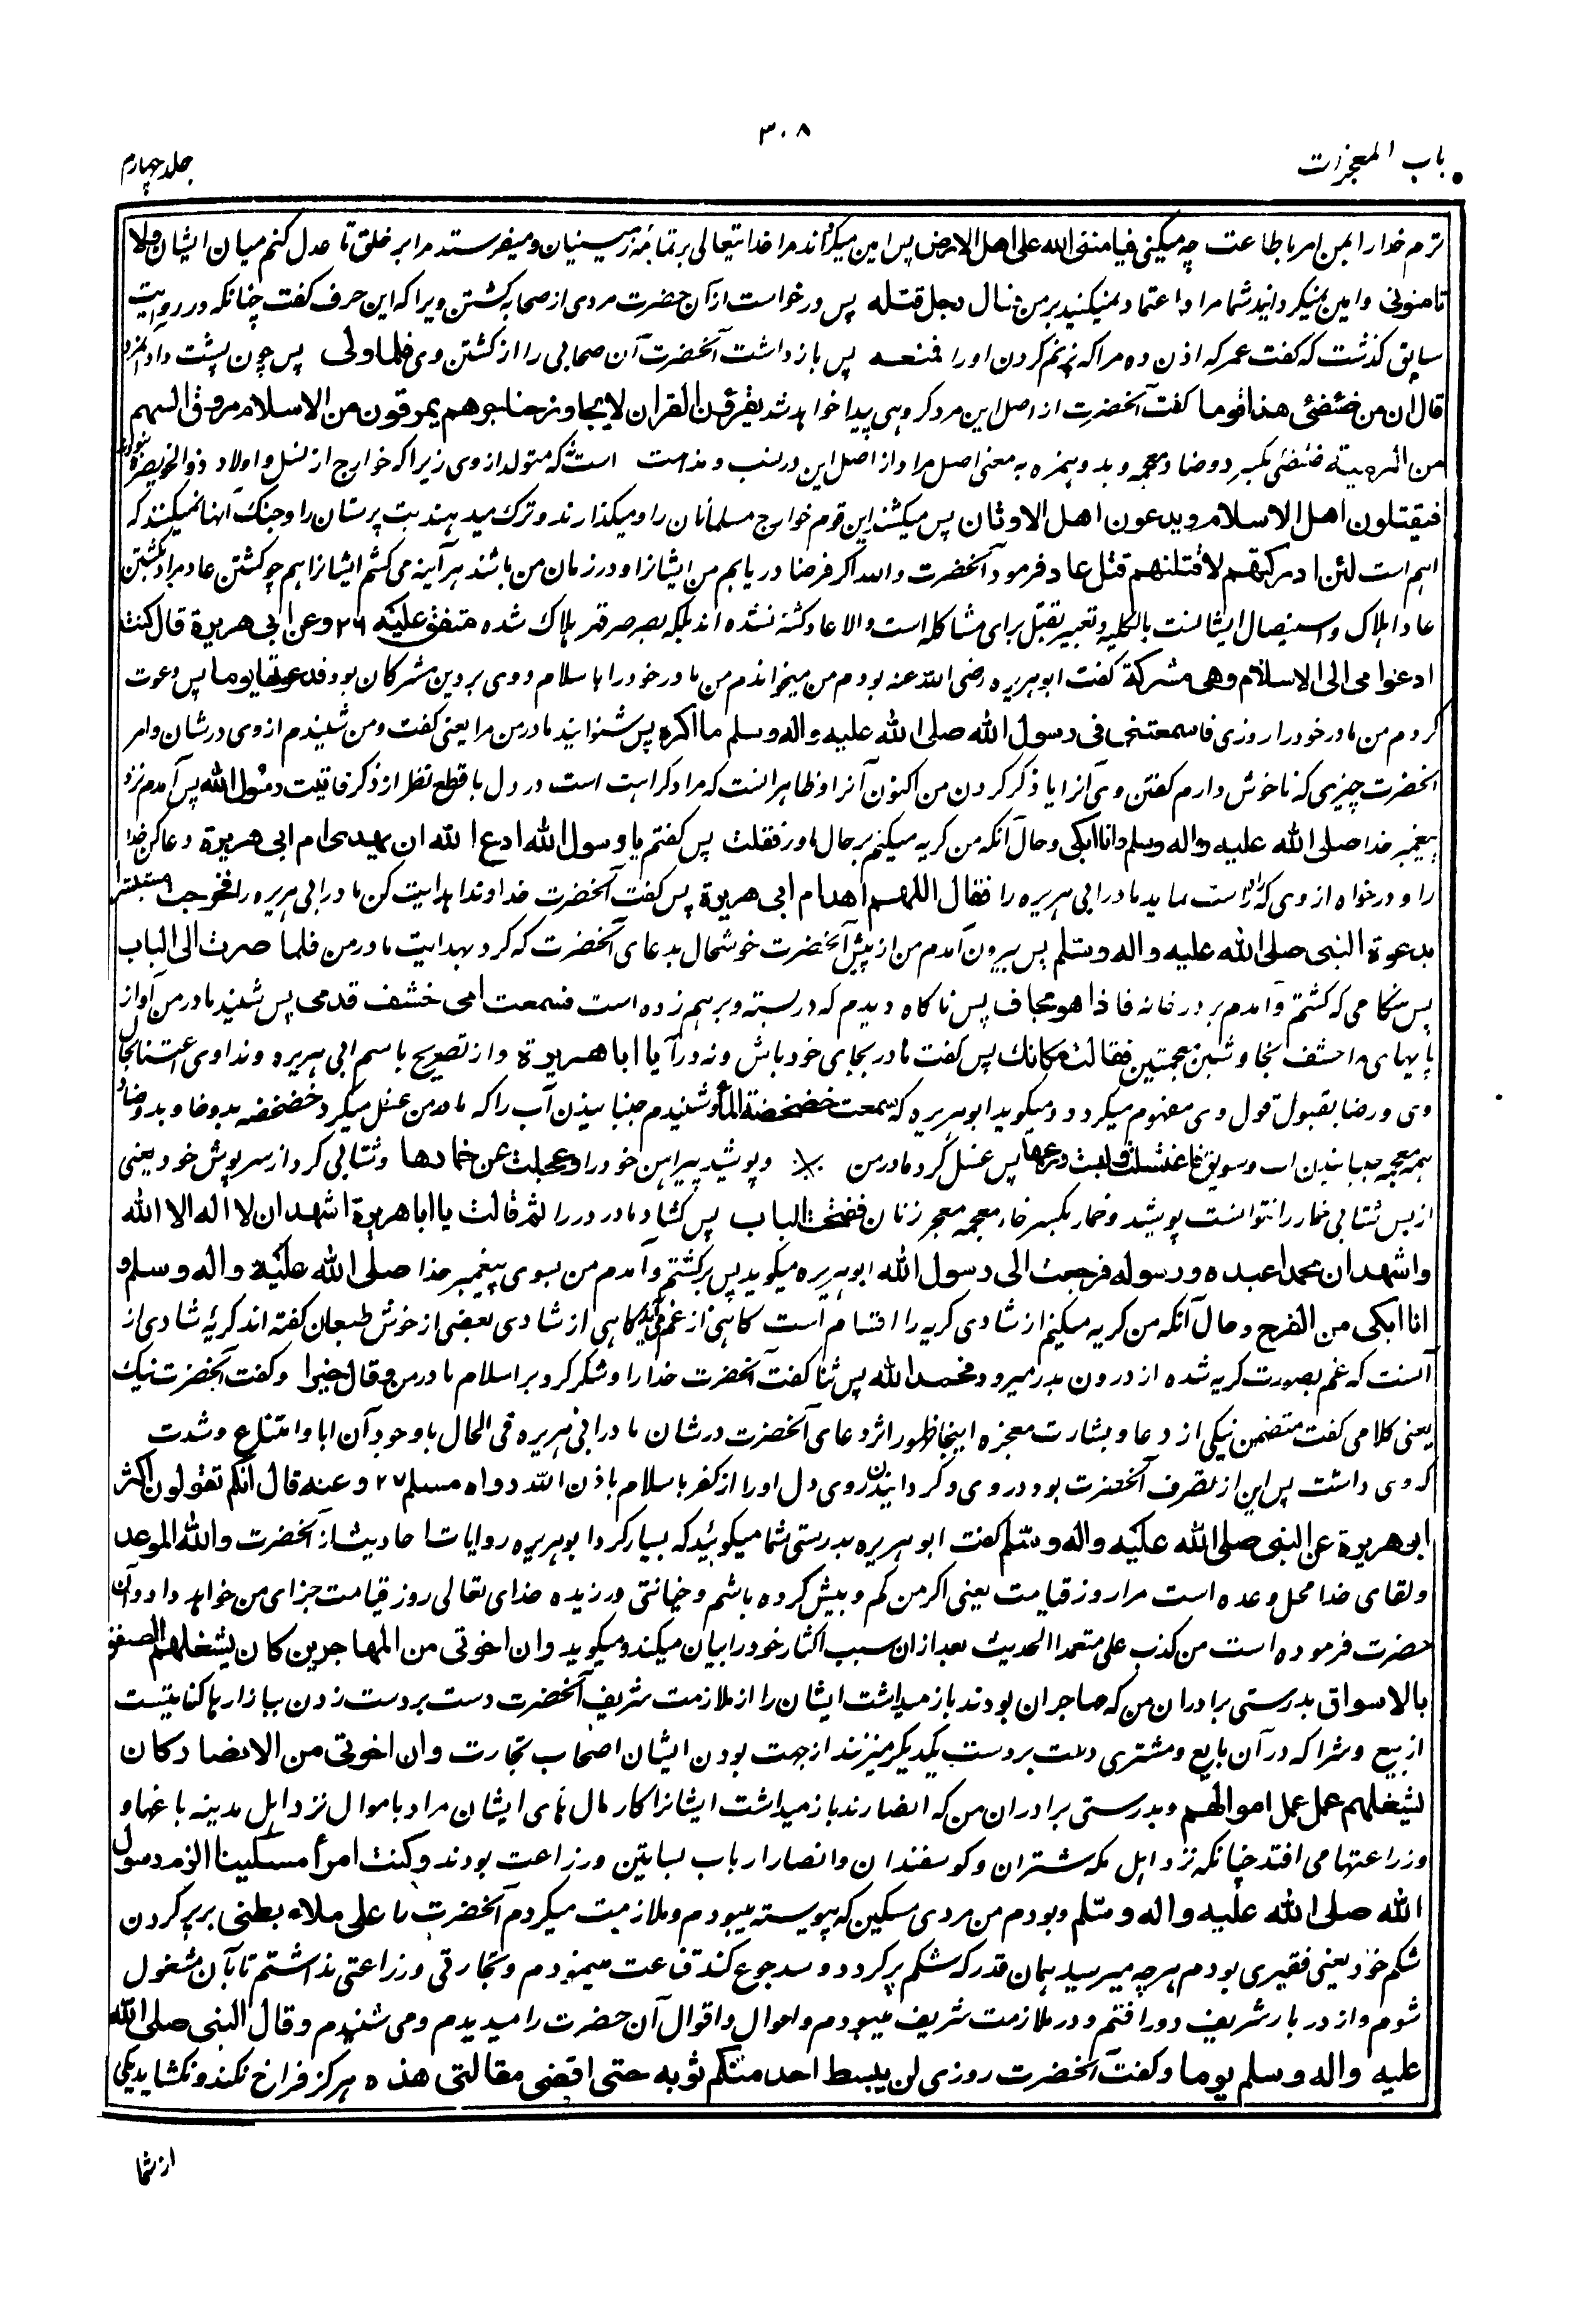 ۳۰۸
باب المعجزات
جلد چهارم
ترم خدارا بمن امر باطاعت چه میکنی فیامننی الله علی اهل الارض پس امین میگرداند مرا خدایتعالی بر تمامهٔ زمینیان و میفرستد مرا بر خلق تا عدل کنم میان ایشان ولا
تامنونی وامین نمیگردانید شما مرا و اعتماد نمیکنید بر من فسال رجل قتله پس درخواست از آن حضرت مردی از صحابه کشتن ویرا که این حرف گفت چنانکه در روایت
سابق گذشت که گفت عمر که اذن ده مرا که بزنم گردن او را فمنعه پس باز داشت آنحضرت آن صحابی را از کشتن وی فلما ولی پس چون پشت داد آنمرد
قال ان من ضئضئ هذا قوما گفت آنحضرت از اصل این مرد گروهی پیدا خواهد شد یقرؤن القران لا یجاوز حناجرهم یمرقون من الاسلام مروق السهم
من الرمیة ضئضئ بکسر دو ضاد معجمه و بدو همزه به معنی اصل مراد از اصل این در نسب و مذهب است نه که متولد از وی زیرا که خوارج از نسل و اولاد ذوالخویصره نبودند
فیقتلون اهل الاسلام ویدعون اهل الاوثان پس میکشند این قوم خوارج مسلمانان را و میگذارند و ترک میدهند بت پرستان را و جنگ آنها نمیکنند که
اهم است لئن ادرکتهم لاقتلنهم قتل عاد فرمود آنحضرت والله اگر فرضا دریابم من ایشانرا و در زمان من باشند هر آینه می کشم ایشانرا همچو کشتن عاد مراد بکشتن
عاد اهلاک و استیصال ایشانست بالکلیه و تعبیر بقتل برای مشاکله است والا عاد کشته نشده اند بلکه بصرصر قهر هلاک شده متفق علیه ۲۶ وعن ابی هریرة قال کنت
ادعوا می الی الاسلام وهی مشرکة گفت ابو هریره رضی الله عنه بودم من میخواندم من مادر خود را باسلام و وی بر دین مشرکان بود فدعوتها یوما پس دعوت
کردم من مادر خود را روزی فاسمعتنی فی رسول الله صلی الله علیه واله وسلم ما اکره پس شنوانید مادر من مرا یعنی گفت و من شنیدم از وی در شان وامر
آنحضرت چیزی که ناخوش دارم گفتن وی آنرا یا ذکر کردن من اکنون آنرا و ظاهر انست که مراد کراهت است در دل با قطع نظر از ذکر فاتیت رسول الله پس آمدم نزد
پیغمبر خدا صلی الله علیه واله وسلم وانا ابکی و حال آنکه من گریه میکنم بر حال مادر فقلت پس گفتم یا رسول الله ادع الله ان یهدی ام ابی هریرة دعا کن خدا
را و درخواه از وی که راه راست نماید مادر ابی هریره را فقال اللهم اهد ام ابی هریرة پس گفت آنحضرت خداوندا هدایت کن مادر ابی هریره را فخرجت مستبشرا
بدعوة النبی صلی الله علیه واله وسلم پس بیرون آمدم من از پیش آنحضرت خوشحال بدعای آنحضرت که کرد بهدایت مادر من فلما صرت الی الباب
پس هنگامی که گشتم و آمدم بر در خانه فاذا هو مجاف پس ناگاه دیدم که در بسته و بر هم زده است فسمعت امی خشف قدمی پس شنید مادر من آواز
پایهای مرا خشف بخا و شین معجمتین فقالت مکانک پس گفت مادر بجای خود باش و نه درآ یا ابا هریرة و از تصریح باسم ابی هریره و نداوی اعتنا بحال
وی و رضا بقبول قول وی مفهوم میگردد و میگوید ابو هریره که سمعت خضخضة الماء و شنیدم جنبانیدن آب را که مادر من غسل میکرد خضخضه بدو خا و بدو ضاد
همه معجمه جنبانیدن اب و سویق فاغتسلت ولبست درعها پس غسل کرد مادر من و پوشید پیراهن خود را وعجلت عن خمارها و شتابی کرد از سرپوش خود یعنی
از بس شتابی خمار را نتوانست پوشید و خمار بکسر خاء معجمه معجر زنان ففتحت الباب پس گشاد مادر در را ثم قالت یا ابا هریرة اشهد ان لا اله الا الله
واشهد ان محمدا عبده ورسوله فرجعت الی رسول الله ابو هریره میگوید پس برگشتم و آمدم من بسوی پیغمبر خدا صلی الله علیه واله وسلم و
انا ابکی من الفرح و حال آنکه من گریه میکنم از شادی گریه را اقسام است گاهی از غم می آید گاهی از شادی بعضی از خوش طبعان گفته اند گریهٔ شادی از
آنست که غم بصورت گریه شده از درون بدر میرود فحمد الله پس ثنا گفت آنحضرت خدا را و شکر کرد بر اسلام مادر من وقال خیرا و گفت آنحضرت نیک
یعنی کلامی گفت متضمن نیکی از دعا و بشارت معجزه اینجا ظهور اثر دعای آنحضرت در شان مادر ابی هریره فی الحال باوجود آن ابا و امتناع و شدت
که وی داشت پس این از تصرف آنحضرت بود در وی و گردانیدن روی دل او را از کفر باسلام باذن الله رواه مسلم ۲۷ وعنه قال انکم تقولون اکثر
ابو هریرة عن النبی صلی الله علیه واله وسلم گفت ابو هریره بدرستی شما میگوئید که بسیار کرد ابو هریره روایات احادیث از آنحضرت والله الموعد
و لقای خدا محل وعده است مرا روز قیامت یعنی اگر من کم و بیش کرده باشم و خیانتی ورزیده خدای تعالی روز قیامت جزای من خواهد داد و آن
حضرت فرموده است من کذب علی متعمدا الحدیث بعد از ان سبب اکثار خود را بیان میکند و میگوید وان اخوتی من المهاجرین کان یشغلهم الصفق
بالاسواق بدرستی برادران من که مهاجران بودند باز میداشت ایشان را از ملازمت شریف آنحضرت دست بر دست زدن ببازارها کنایتست
از بیع و شرا که در آن بایع و مشتری دست بر دست یکدیگر میزنند از جهت بودن ایشان اصحاب تجارت وان اخوتی من الانصار کان
یشغلهم عمل اموالهم و بدرستی برادران من که انصارند باز میداشت ایشانرا کار مال های ایشان مراد باموال نزد اهل مدینه باغها و
وزراعتها می افتد چنانکه نزد اهل مکه شتران و گوسفندان و انصار ارباب بساتین و زراعت بودند وکنت امرأ مسکینا الزم رسول
الله صلی الله علیه واله وسلم و بودم من مردی مسکین که پیوسته میبودم و ملازمت میکردم آنحضرت را علی ملاء بطنی بر پر کردن
شکم خود یعنی فقیری بودم هر چه میرسید همان قدر که شکم پر گردد و سد جوع کند قناعت مینمودم و تجارتی و زراعتی نداشتم تا بآن مشغول
شوم و از دربار شریف دور افتم و در ملازمت شریف میبودم و احوال و اقوال آن حضرت را میدیدم و می شنیدم وقال النبی صلی الله
علیه واله وسلم یوما و گفت آنحضرت روزی لن یبسط احد منکم ثوبه حتی اقضی مقالتی هذه هرگز فراخ نکند و نگشاید یکی
از شما